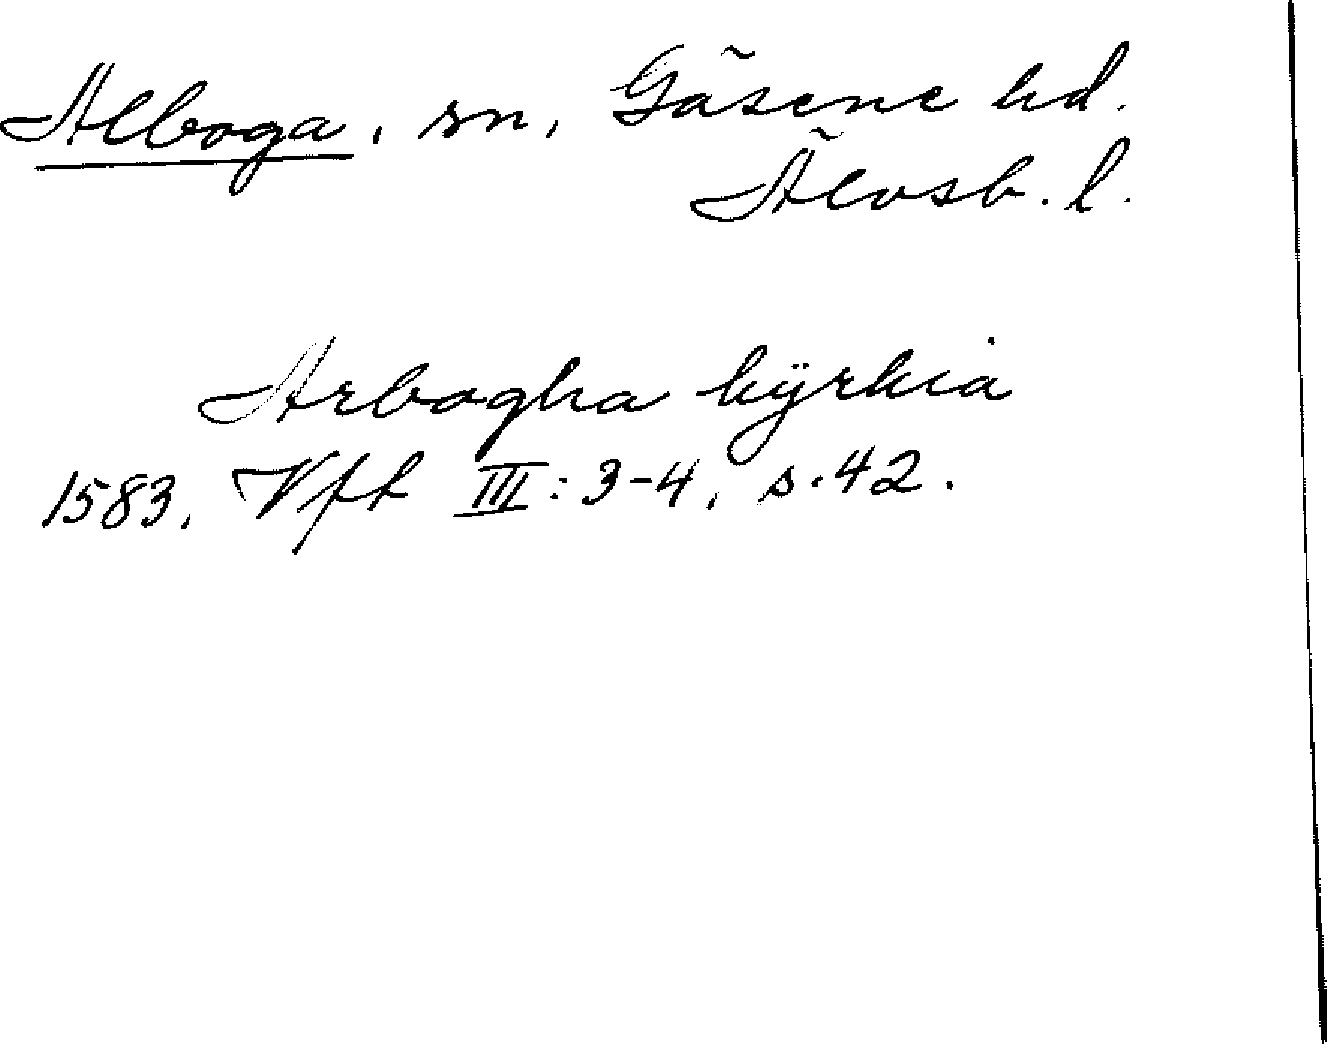 Alboga, sn, Gäsene hd.
Älvsb. l.
Arbogha kÿrkia
1583, Vft III: 3-4, s. 42.